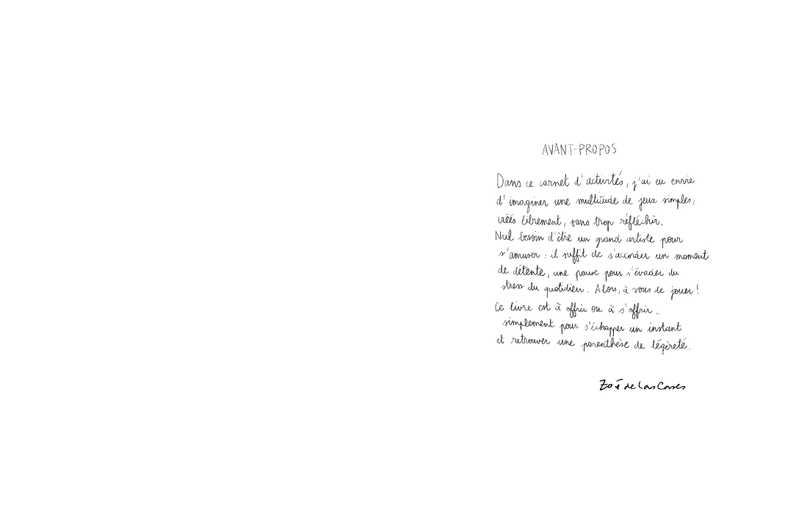 AVANT-PROPOS
Dans ce carnet d'activités, j'ai eu envie
d'imaginer une multitude de jeux simples,
créés librement, sans trop réfléchir.
Nul besoin d'être un grand artiste pour
s'amuser : il suffit de s'accorder un moment
de détente, une pause pour s'évader du
stress du quotidien. Alors, à vous de jouer !
Ce livre est à offrir ou à s'offrir.
simplement pour s'échapper un instant
et retrouver une parenthèse de légèreté.
Zoé de Las Cases